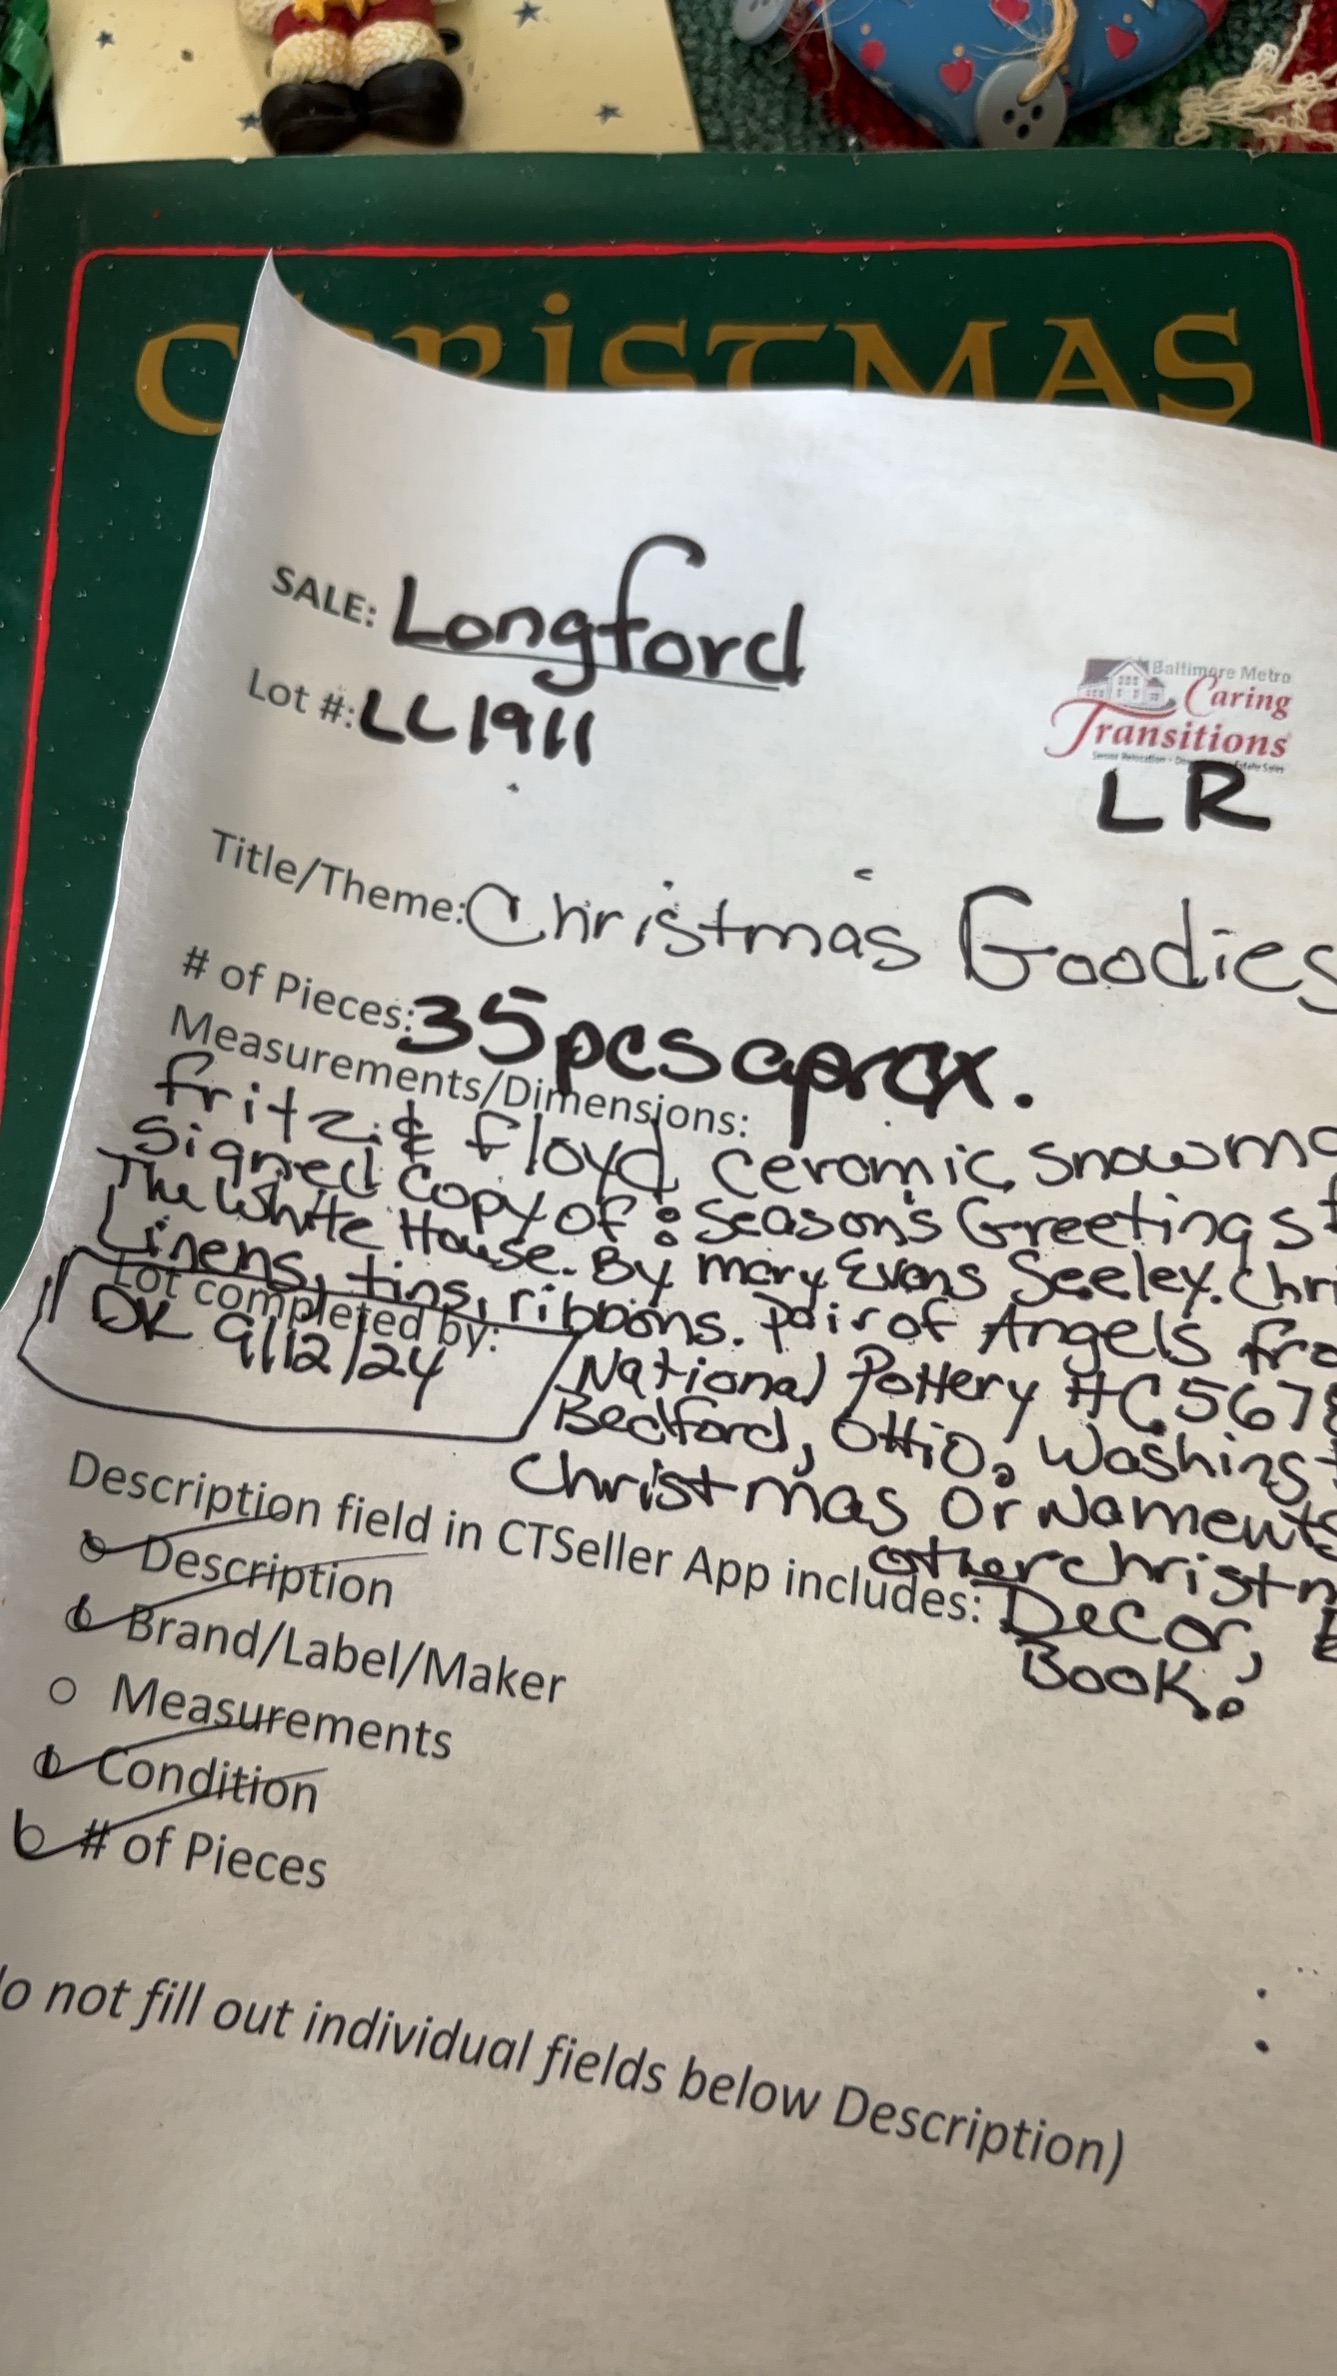 CHRISTMAS
SALE: Longford
Lot #: LL1911
Baltimore Metro
Caring
Transitions
LR
Title/Theme: Christmas Goodies
# of Pieces: 35pcs aprox.
Measurements/Dimensions:
fritz & floyd ceramic snowma
signed copy of: Season's Greetings f
The White House. By Mary Evans Seeley. Chri
Linens, tins, ribbons. Pair of Angels fro
Lot completed by:
DK 9/12/24
National Pottery #C5678
Bedford, OHIO. Washingt
Christmas OrNaments
other christm
Decor,
Book.
Description field in CTSeller App includes:
Description
Brand/Label/Maker
Measurements
Condition
# of Pieces
do not fill out individual fields below Description)